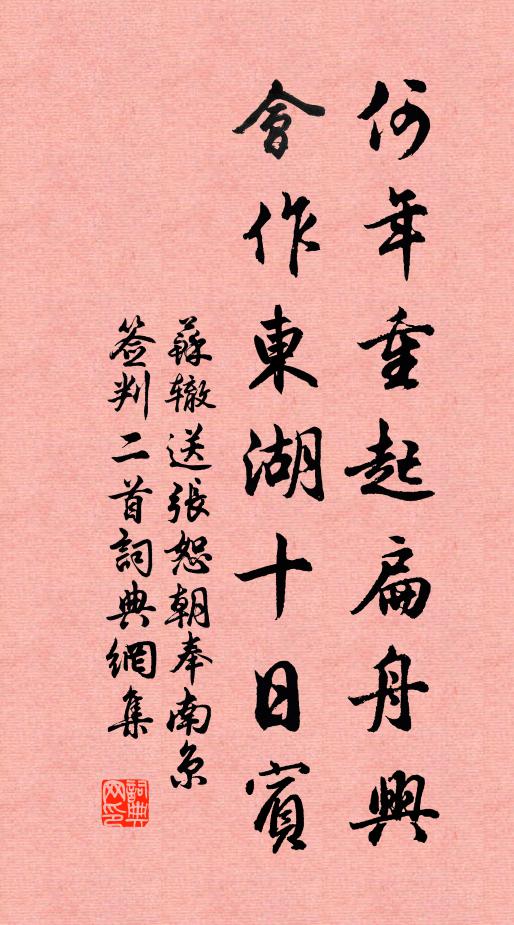 何年重起扁舟興
會作東湖十日賓
蘇辙送張恕朝奉南京
签判二首詞典網集
詞典网印